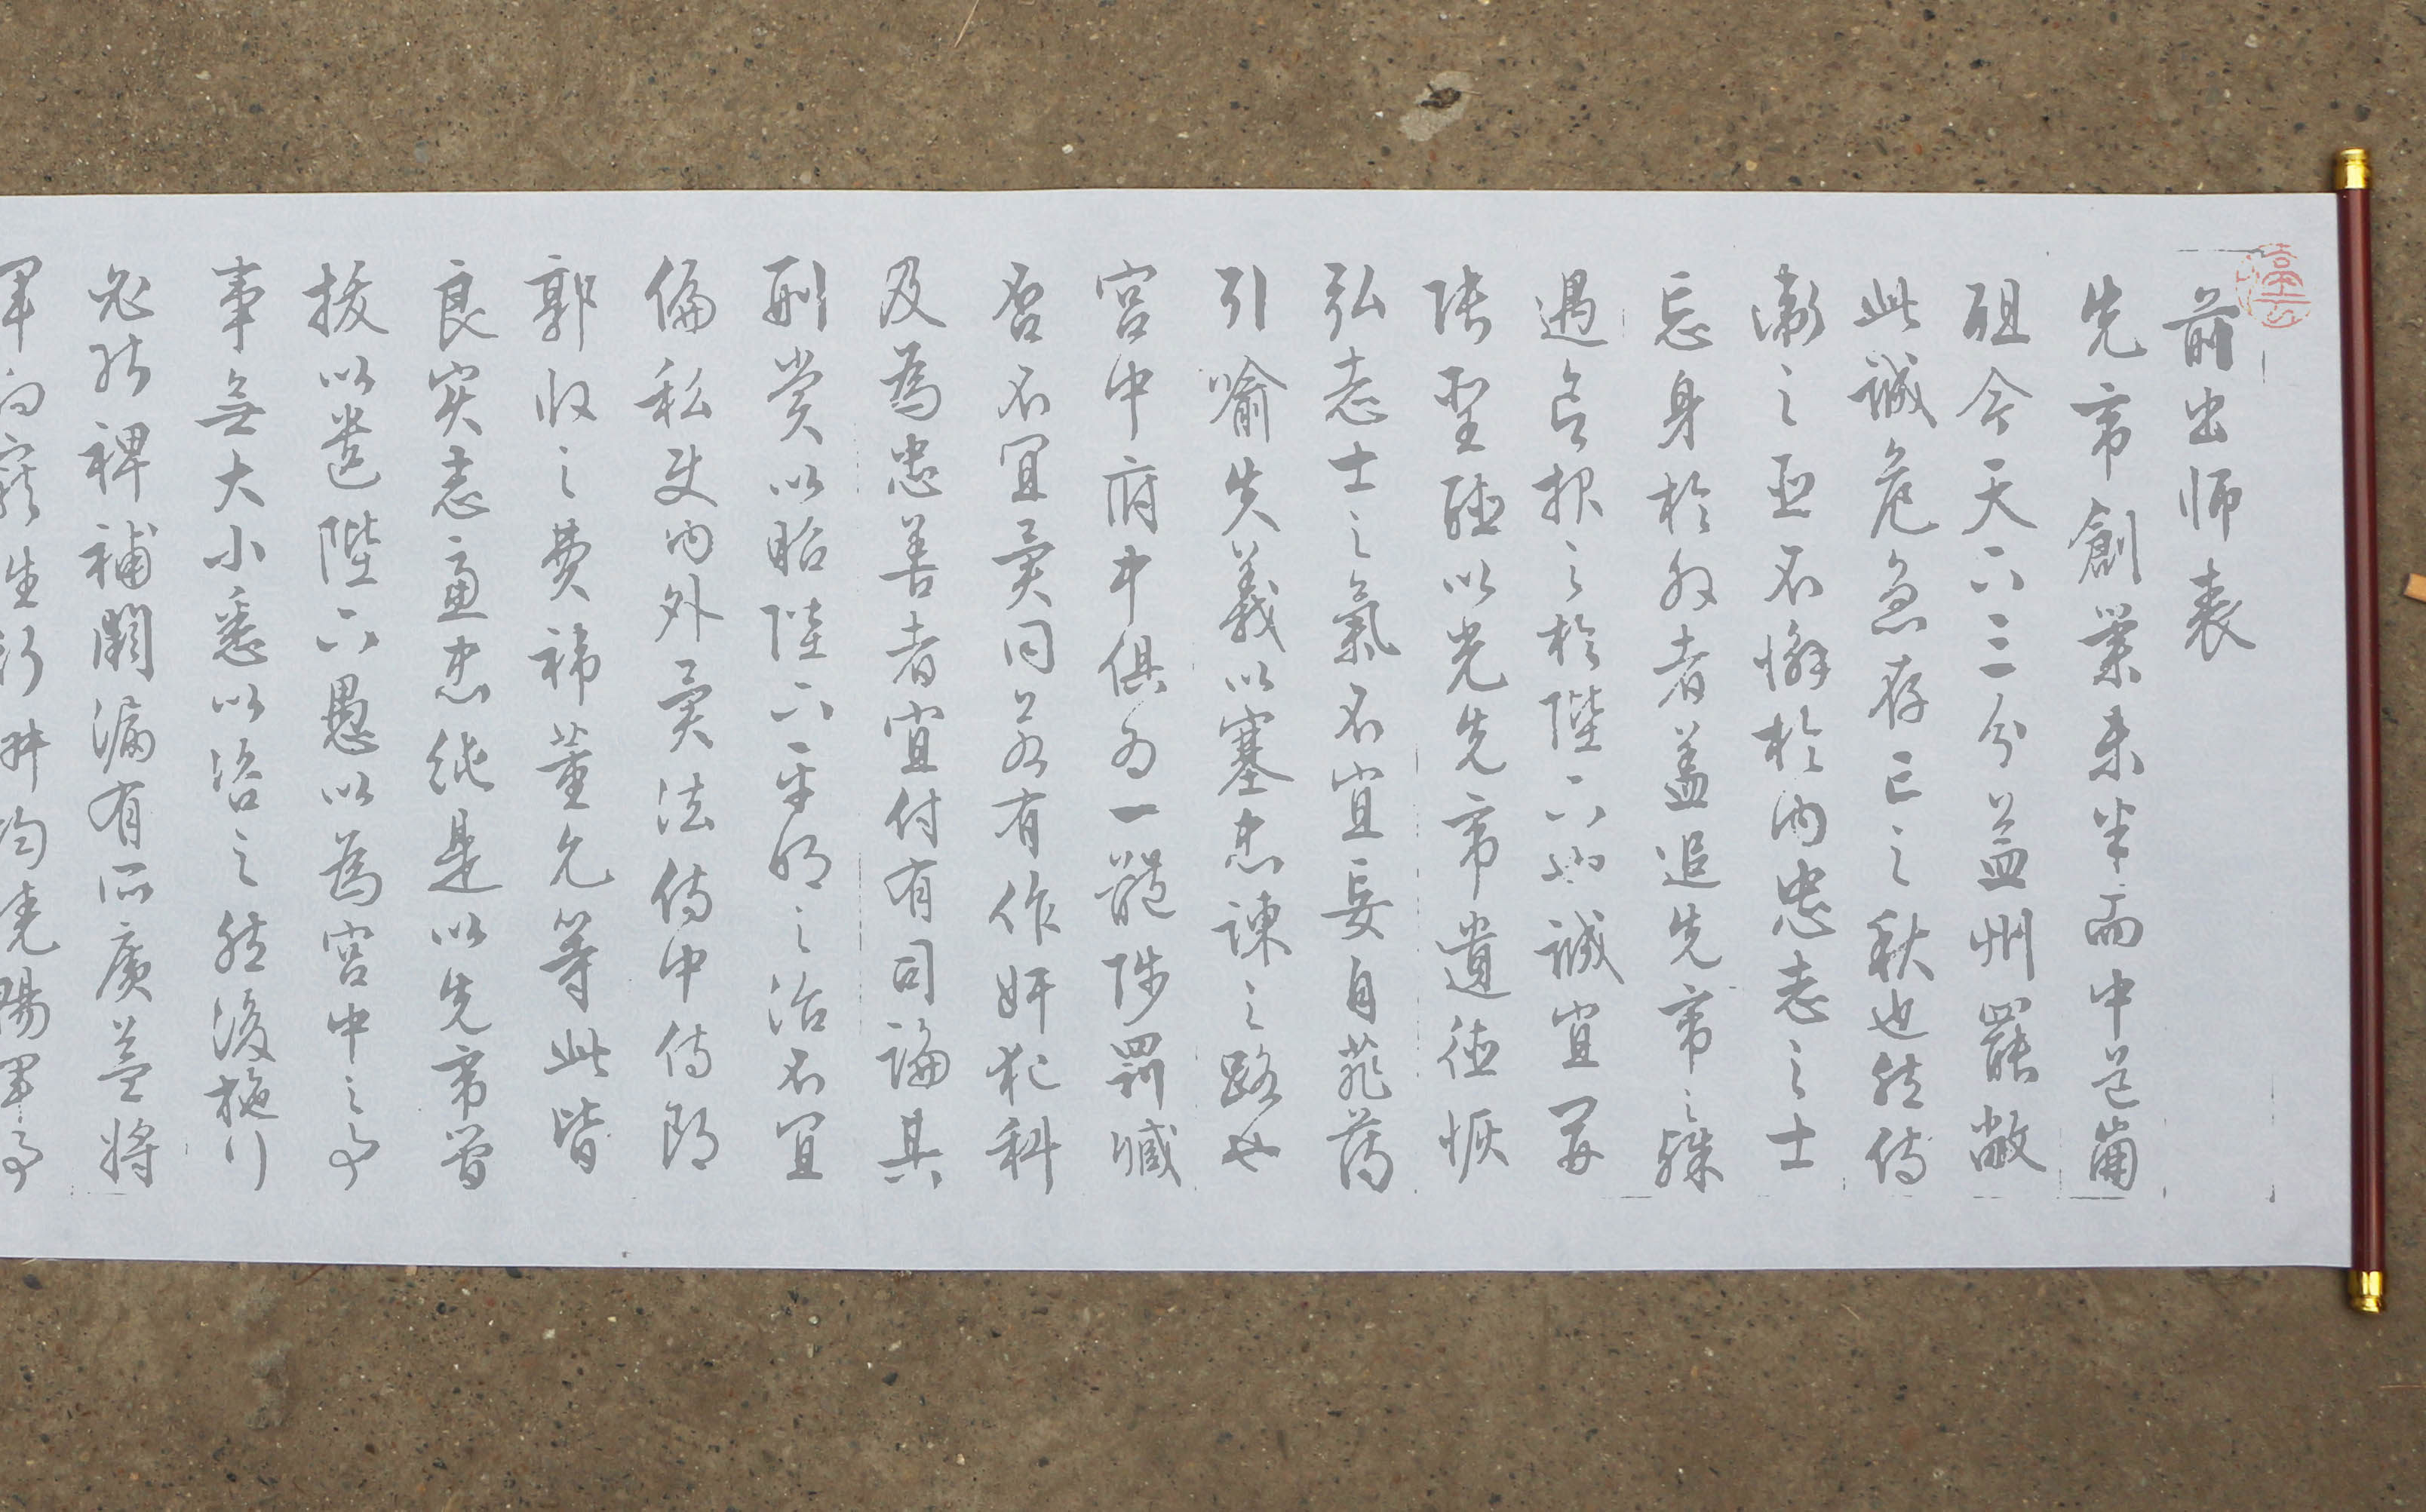 前出师表
先帝創業未半而中道崩
殂今天下三分益州罷敝
此誠危急存亡之秋也然侍
衛之臣不懈於內忠志之士
忘身於外者蓋追先帝之殊
遇欲報之於陛下也誠宜開
張聖聽以光先帝遺德恢
弘志士之氣不宜妄自菲薄
引喻失義以塞忠諫之路也
宮中府中俱為一體陟罰臧
否不宜異同若有作奸犯科
及為忠善者宜付有司論其
刑賞以昭陛下平明之治不宜
偏私使內外異法侍中侍郎
郭攸之費禕董允等此皆
良實志慮忠純是以先帝簡
拔以遺陛下愚以為宮中之事
事無大小悉以咨之然後施行
必能裨補闕漏有所廣益將
軍向寵性行淑均曉暢軍事